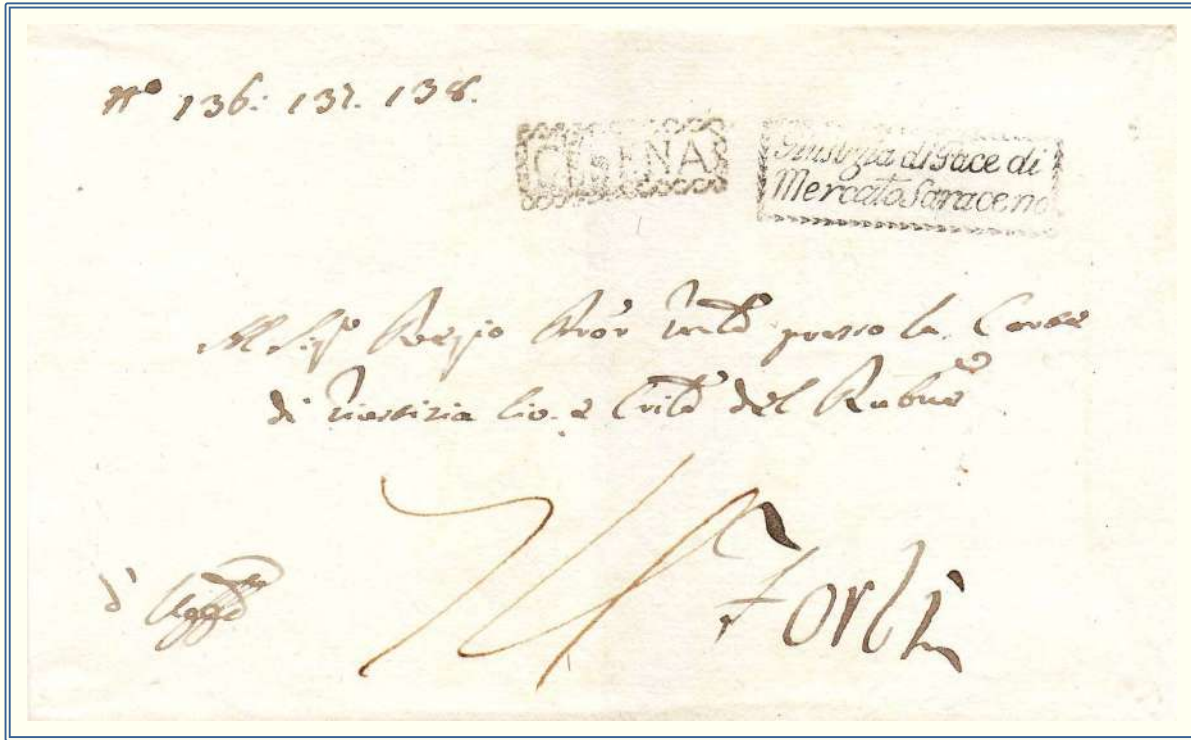 Nº 136: 137. 138.
CESENA
Giustizia di Pace di
Mercato Saraceno
Al Sigr Regio presso la Corte
di Giustizia Civ. e del Rubne
d' Uffo
Forlì